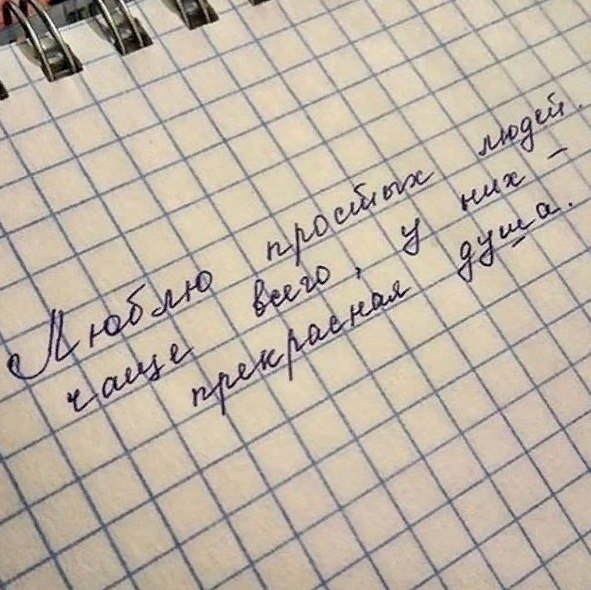 Люблю простых людей.
чаще всего, у них –
прекрасная душа.